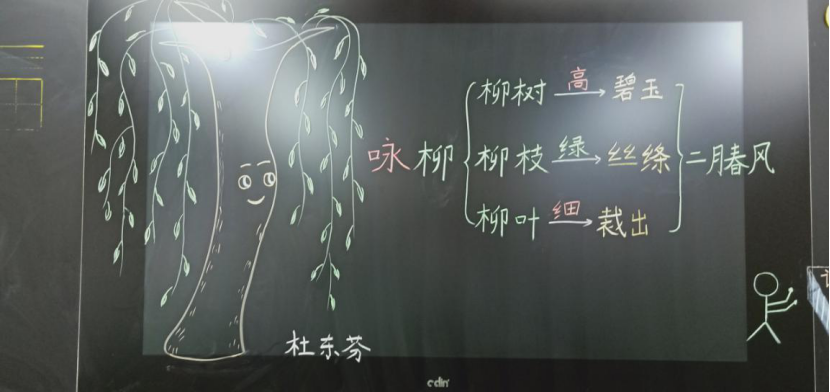 柳树 高 碧玉
咏柳 柳枝 绿 丝绦 二月春风
柳叶 细 裁出
杜东芬